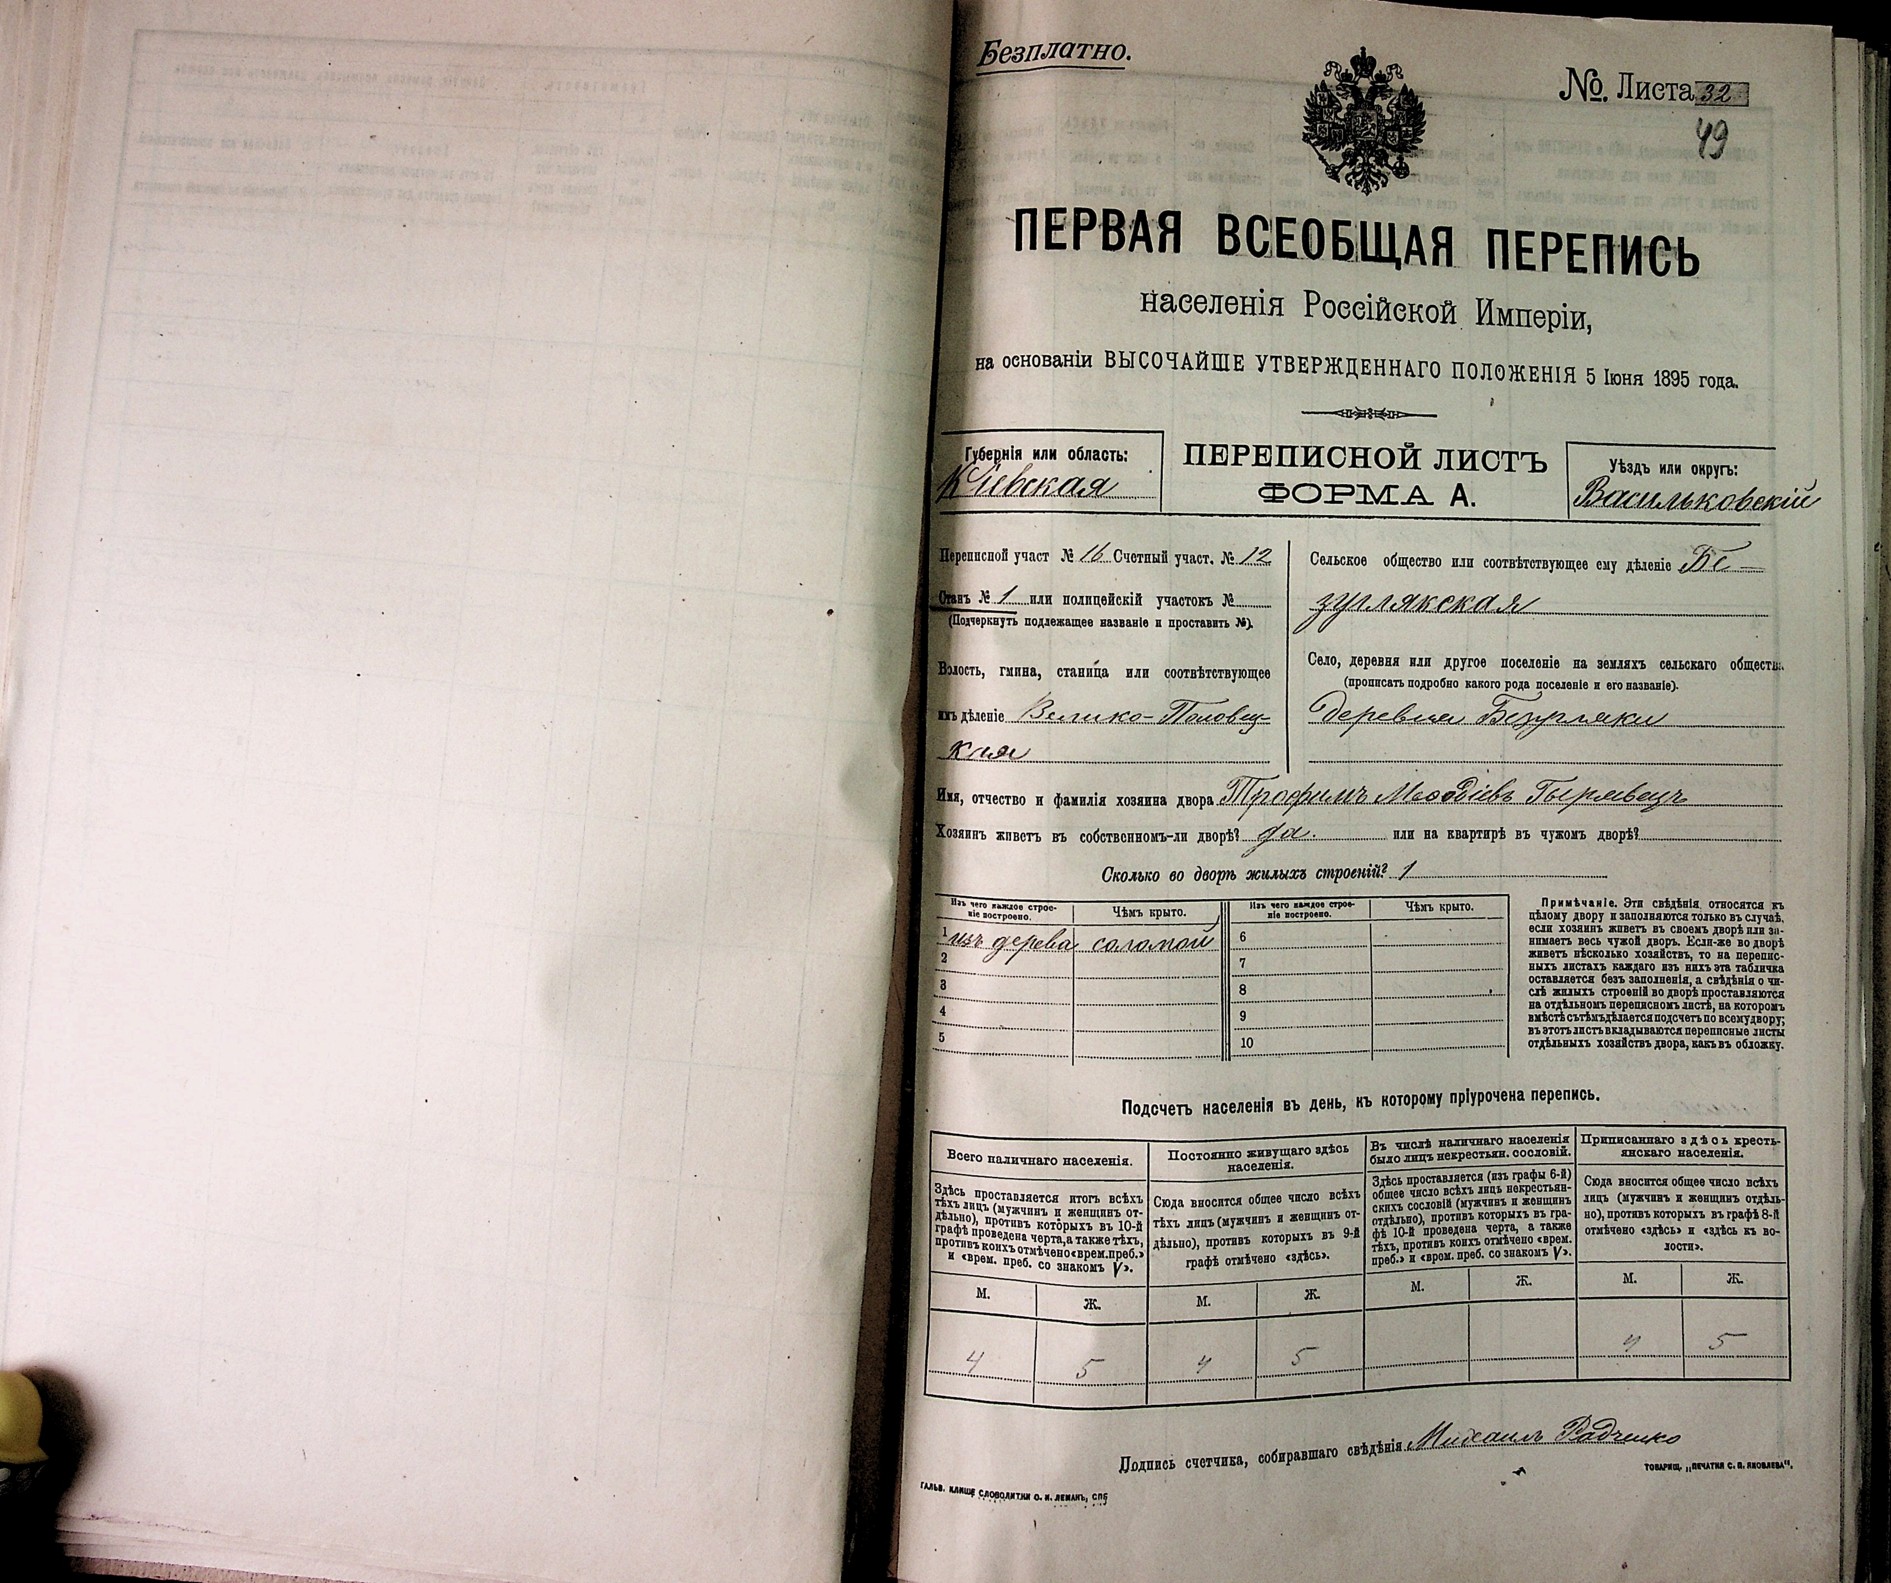 Безплатно.
№. Листа 32
49
ПЕРВАЯ ВСЕОБЩАЯ ПЕРЕПИСЬ
населенія Россійской Имперіи,
на основаніи ВЫСОЧАЙШЕ УТВЕРЖДЕННАГО ПОЛОЖЕНІЯ 5 Іюня 1895 года.
Губернія или область:
Кіевская
ПЕРЕПИСНОЙ ЛИСТЪ
ФОРМА А.
Уѣздъ или округъ:
Васильковскій
Переписной участ № 16 Счетный участ. № 12
Станъ № 1 или полицейскій участокъ №
(Подчеркнуть подлежащее названіе и проставить №).
Волость, гмина, станица или соотвѣтствующее
имъ дѣленіе Велико-Половец-
кая
Сельское общество или соотвѣтствующее ему дѣленіе Бе-
зуглякская
Село, деревня или другое поселеніе на земляхъ сельскаго общества
(прописать подробно какого рода поселеніе и его названіе).
деревня Безугляки
Имя, отчество и фамилія хозяина двора Трофимъ
Хозяинъ живетъ въ собственномъ-ли дворѣ? да. или на квартирѣ въ чужомъ дворѣ?
Сколько во дворѣ жилыхъ строеній? 1
Изъ чего каждое строе-
ніе построено.
Чѣмъ крыто.
1 изъ дерева соломой
2
3
4
5
Изъ чего каждое строе-
ніе построено.
Чѣмъ крыто.
6
7
8
9
10
Примѣчаніе. Эти свѣдѣнія относятся къ
цѣлому двору и заполняются только въ случаѣ,
если хозяинъ живетъ въ своемъ дворѣ или за-
нимаетъ весь чужой дворъ. Если-же во дворѣ
живетъ нѣсколько хозяйствъ, то на перепис-
ныхъ листахъ каждаго изъ нихъ эта табличка
оставляется безъ заполненія, а свѣдѣнія о чи-
слѣ жилыхъ строеній во дворѣ проставляются
на отдѣльномъ переписномъ листѣ, на которомъ
вмѣстѣ съ тѣмъ дѣлается подсчетъ по всему двору;
въ этотъ листъ вкладываются переписные листы
отдѣльныхъ хозяйствъ двора, какъ въ обложку.
Подсчетъ населенія въ день, къ которому пріурочена перепись.
Всего наличнаго населенія.
Здѣсь проставляется итогъ всѣхъ
тѣхъ лицъ (мужчинъ и женщинъ от-
дѣльно), противъ которыхъ въ 10-й
графѣ проведена черта, а также тѣхъ,
противъ коихъ отмѣчено «врем. преб.»
и «врем. преб. со знакомъ V».
М.
Ж.
4
5
Постоянно живущаго здѣсь
населенія.
Сюда вносится общее число всѣхъ
тѣхъ лицъ (мужчинъ и женщинъ от-
дѣльно), противъ которыхъ въ 9-й
графѣ отмѣчено «здѣсь».
М.
Ж.
4
5
Въ числѣ наличнаго населенія
было лицъ некрестьян. сословій.
Здѣсь проставляется (изъ графы 6-й)
общее число всѣхъ лицъ некрестьян-
скихъ сословій (мужчинъ и женщинъ
отдѣльно), противъ которыхъ въ гра-
фѣ 10-й проведена черта, а также
тѣхъ, противъ коихъ отмѣчено «врем.
преб.» и «врем. преб. со знакомъ V».
М.
Ж.
Приписаннаго здѣсь кресть-
янскаго населенія.
Сюда вносится общее число всѣхъ
лицъ (мужчинъ и женщинъ отдѣль-
но), противъ которыхъ въ графѣ 8-й
отмѣчено «здѣсь» и «здѣсь къ во-
лости».
М.
Ж.
4
5
Подпись счетчика, собиравшаго свѣдѣнія Михаилъ Радченко
ГАЛЬВ. КЛИШЕ СЛОВОЛИТНИ О. И. ЛЕМАНЪ, СПБ
ТОВАРИЩ. „ПЕЧАТНЯ С. П. ЯКОВЛЕВА".